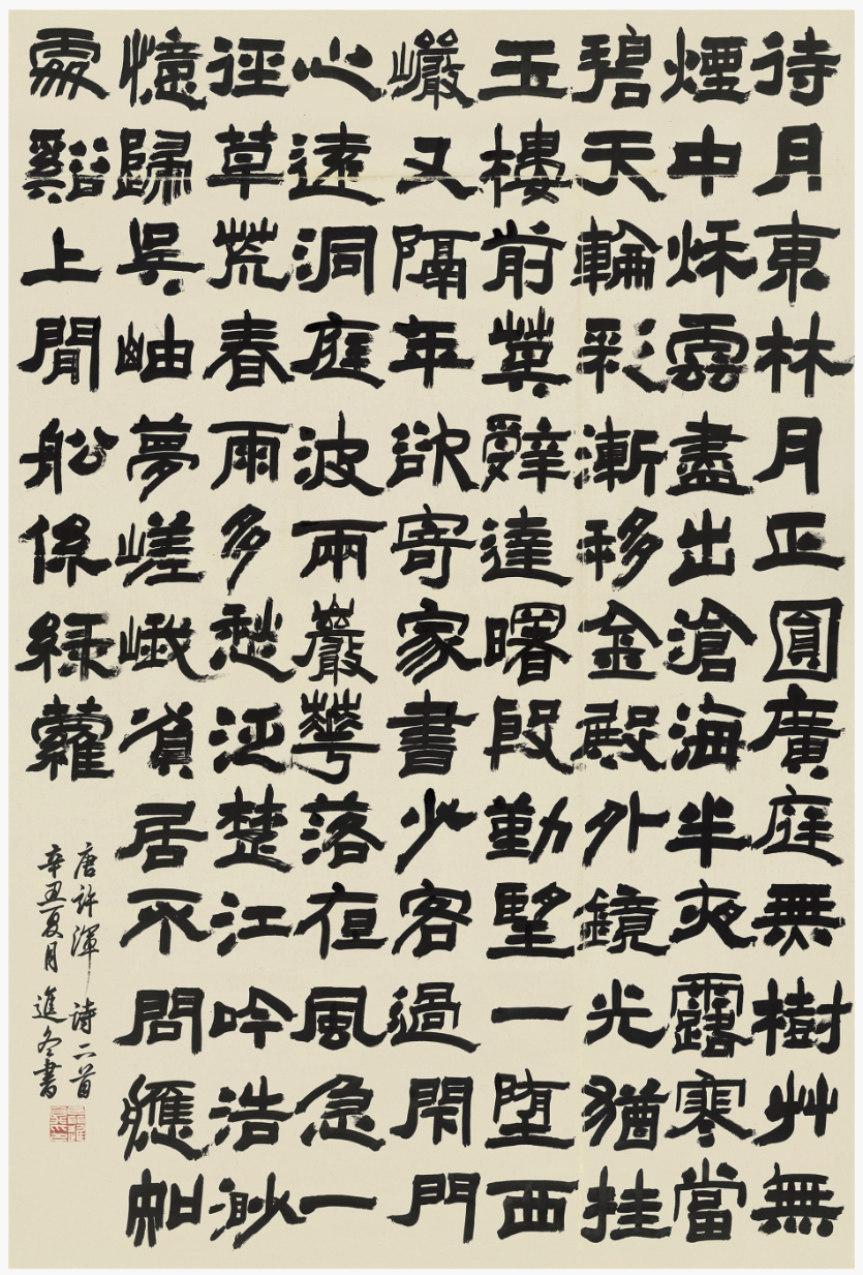 待月東林月正圓廣庭無樹艸無
煙中秌雲盡出滄海半夜露寒當
碧天輪彩漸移金殿外鏡光猶挂
玉樓前莫辤達曙殷勤望一墮西
巗又隔年欲寄家書少客過閑門
心遠洞庭波兩巖華落夜風急一
徑草荒春雨多愁泛楚江吟浩渺
憶歸吳岫夢嵯峨貧居不問應知
處谿上閒船係綠蘿
唐許渾詩二首
辛丑夏月進冬書